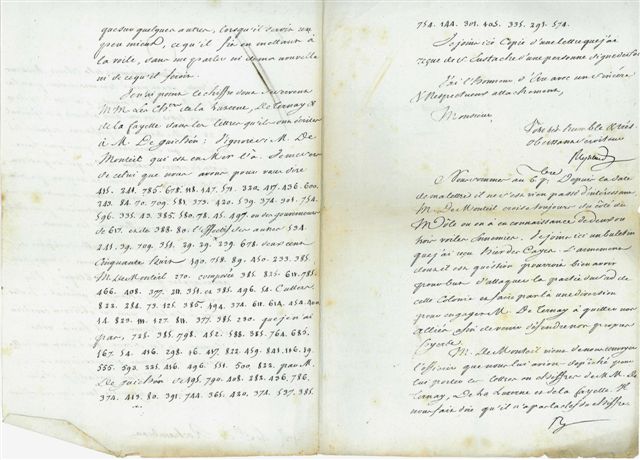 que sur quelques autres, lorsqu'il seroit un
peu mieux, ce qu'il fit en mettant à
la voile, sans me parler ni de ma nouvelle
ni de ce qu'il feroit.
Je n'ai point le chiffre dont se servent
MM. Les Ch.ers de la Luzerne, De Ternay &
de la fayette dans les lettres qu'ils ont écrites
à M. De Guichen: J'ignore si M. De
Monteil qui est en Mer l'a. Je me sers
de celui que nous avons pour vous dire
415. 241. 786. 678. 118. 147. 571. 330. 417. 436. 600.
243. 84. 70. 709. 581. 373. 420. 539. 374. 301. 754.
596. 335. 43. 385. 180. 78. 45. 497. ou des gouverneurs
de 617. et de 388. 80. L'effectif des autres 534.
241. 39. 709. 351. 29. 29. 239. 678 deux cent
Cinquante huit 190. 758. 89. 450. 233. 385.
M. De Monteil 270. composée 385. 835. 611. 785.
466. 408. 377. 211. 351. et 385. 496. 54. Cutters
823. 284. 73. 125. 386. 494. 374. 611. 614. 454. 400
14. 823. 111. 127. 811. 377. 385. 230. que je n'ai
pas, 725. 385. 798. 452. 588. 385. 764. 685.
167. 54. 416. 298. 16. 417. 822. 459. 841. 116. 19.
555. 593. 235. 416. 496. 551. 500. 823. par M.
De Guichen 495. 790. 408. 283. 436. 786.
374. 413. 80. 391. 744. 365. 420. 374. 537. 385.
754. 144. 301. 405. 335. 291. 574.
Je joins ici Copie d'une lettre que j'ai
reçue de St. Eustache d'une personne
J'ai l'honneur d'être avec un Sincère
& Respectueux attachement,
Monsieur,
Votre très humble & très
obéissant Serviteur
Depuis la date
de ma lettre il ne s'est rien passé d'intéressant.
M. De Monteil croise toujours du côté du
Môle où on a eu connaissance de deux ou
trois voiles Ennemies. Je joins ici un bulletin
que j'ai reçu hier des Cayes. L'armement
dont il est question pourroit bien avoir
pour but d'attaquer la partie du Sud de
cette Colonie et faire par là une diversion
pour engager M. De Ternay à quitter nos
alliés afin de venir défendre nos propres
foyers.
M. De Monteil vient de nous renvoyer
l'officier que nous lui avions dépêché pour
lui porter les lettres en chiffres de MM. De
Ternay, De la Luzerne et de la fayette. Il
nous fait dire qu'il n'a pas la clef de ce chiffre